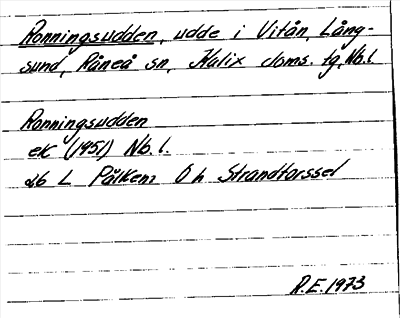 Ronningsudden, udde i Vitån, Lång-
sund, Råneå sn, Kalix doms. tg, Nb.l.
Ronningsudden
ek (1951) Nb. l.
26 L Pålkem Ö h Strandforssel
R.E. 1973